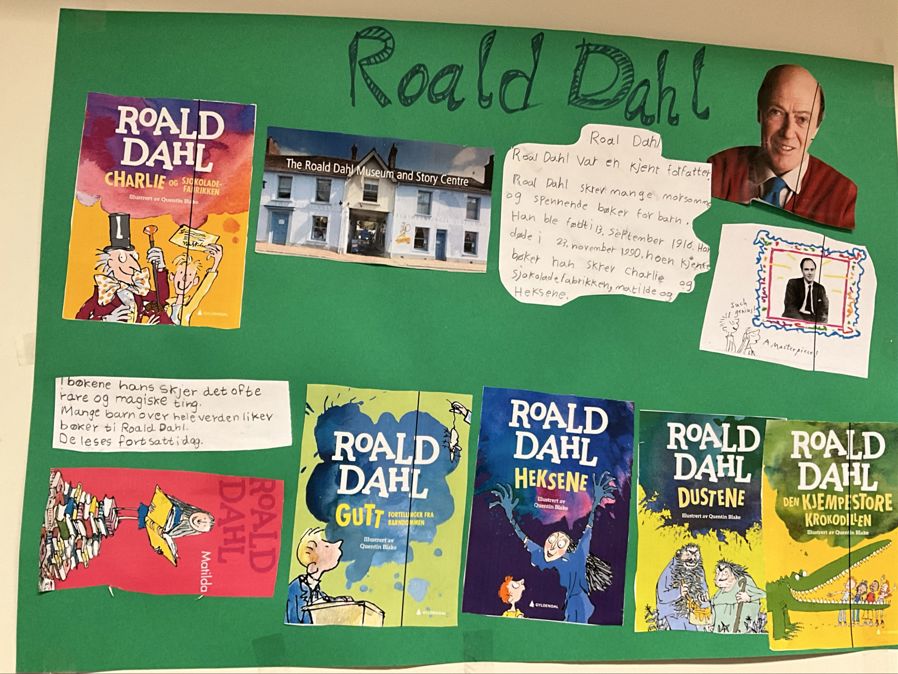 Roald Dahl
ROALD
DAHL
CHARLIE OG SJOKOLADE-
FABRIKKEN
Illustrert av Quentin Blake
GYLDENDAL
The Roald Dahl Museum and Story Centre
Roal Dahl
Roal Dahl var en kjent forfatter
Roal Dahl skrev mange morsomme
og spennende bøker for barn.
Han ble født i 13. September 1916. Han
døde i 23. november 1990. noen kjente
bøker han skrev Charlie og
sjokoladefabrikken, matilde og
Heksene.
Such
genius!
A Masterpiece!
I bøkene hans skjer det ofte
rare og magiske ting.
Mange barn over hele verden liker
bøker ti Roald Dahl.
De leses fortsatt idag.
ROALD
DAHL
Matilda
ROALD
DAHL
GUTT FORTELLINGER FRA
BARNDOMMEN
Illustrert av
Quentin Blake
GYLDENDAL
ROALD
DAHL
HEKSENE
Illustrert av
Quentin Blake
GYLDENDAL
ROALD
DAHL
DUSTENE
Illustrert av Quentin Blake
ROALD
DAHL
DEN KJEMPESTORE
KROKODILLEN
Illustrert av Quentin Blake
GYLDENDAL